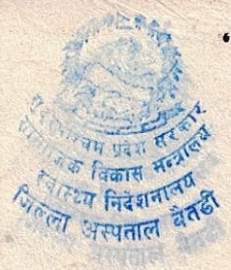 सुदूरपश्चिम प्रदेश सरकार
सामाजिक विकास मन्त्रालय
स्वास्थ्य निर्देशनालय
जिल्ला अस्पताल बैतडी